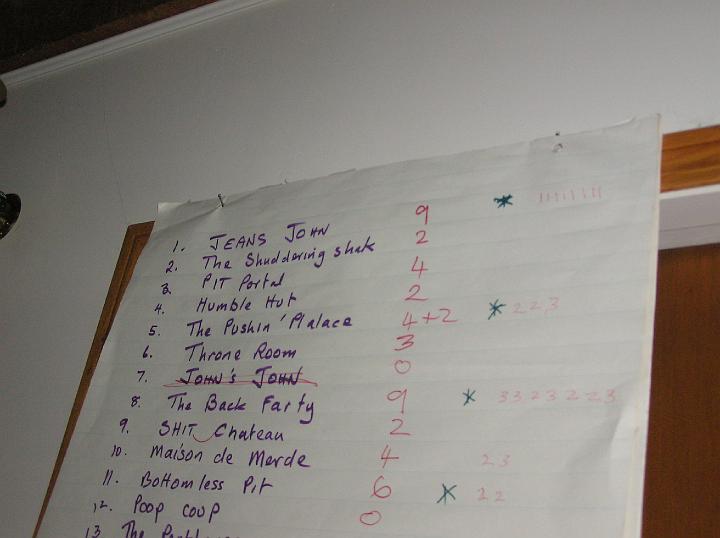 1. JEANS JOHN 9 * 11111111
2. The Shuddering shak 2
3. PIT Portal 4
4. Humble Hut 2
5. The Pushin' Plalace 4+2 * 2 2 3
6. Throne Room 3
7. JOHN'S JOHN 0
8. The Back Farty 9 * 3 3 2 3 2 2 3
9. SHIT Chateau 2
10. Maison de Merde 4 2 3
11. Bottomless Pit 6 * 2 2
12. Poop coup 0
13. The